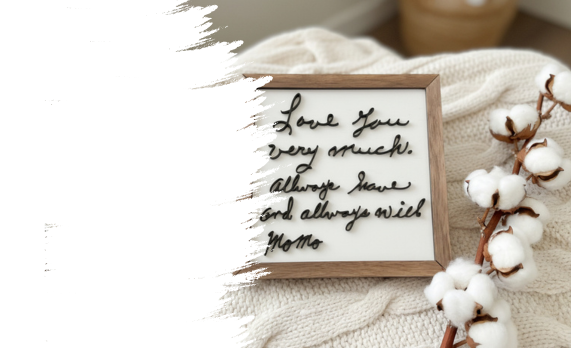 Love You
very much.
allways have
and allways will
MoMo